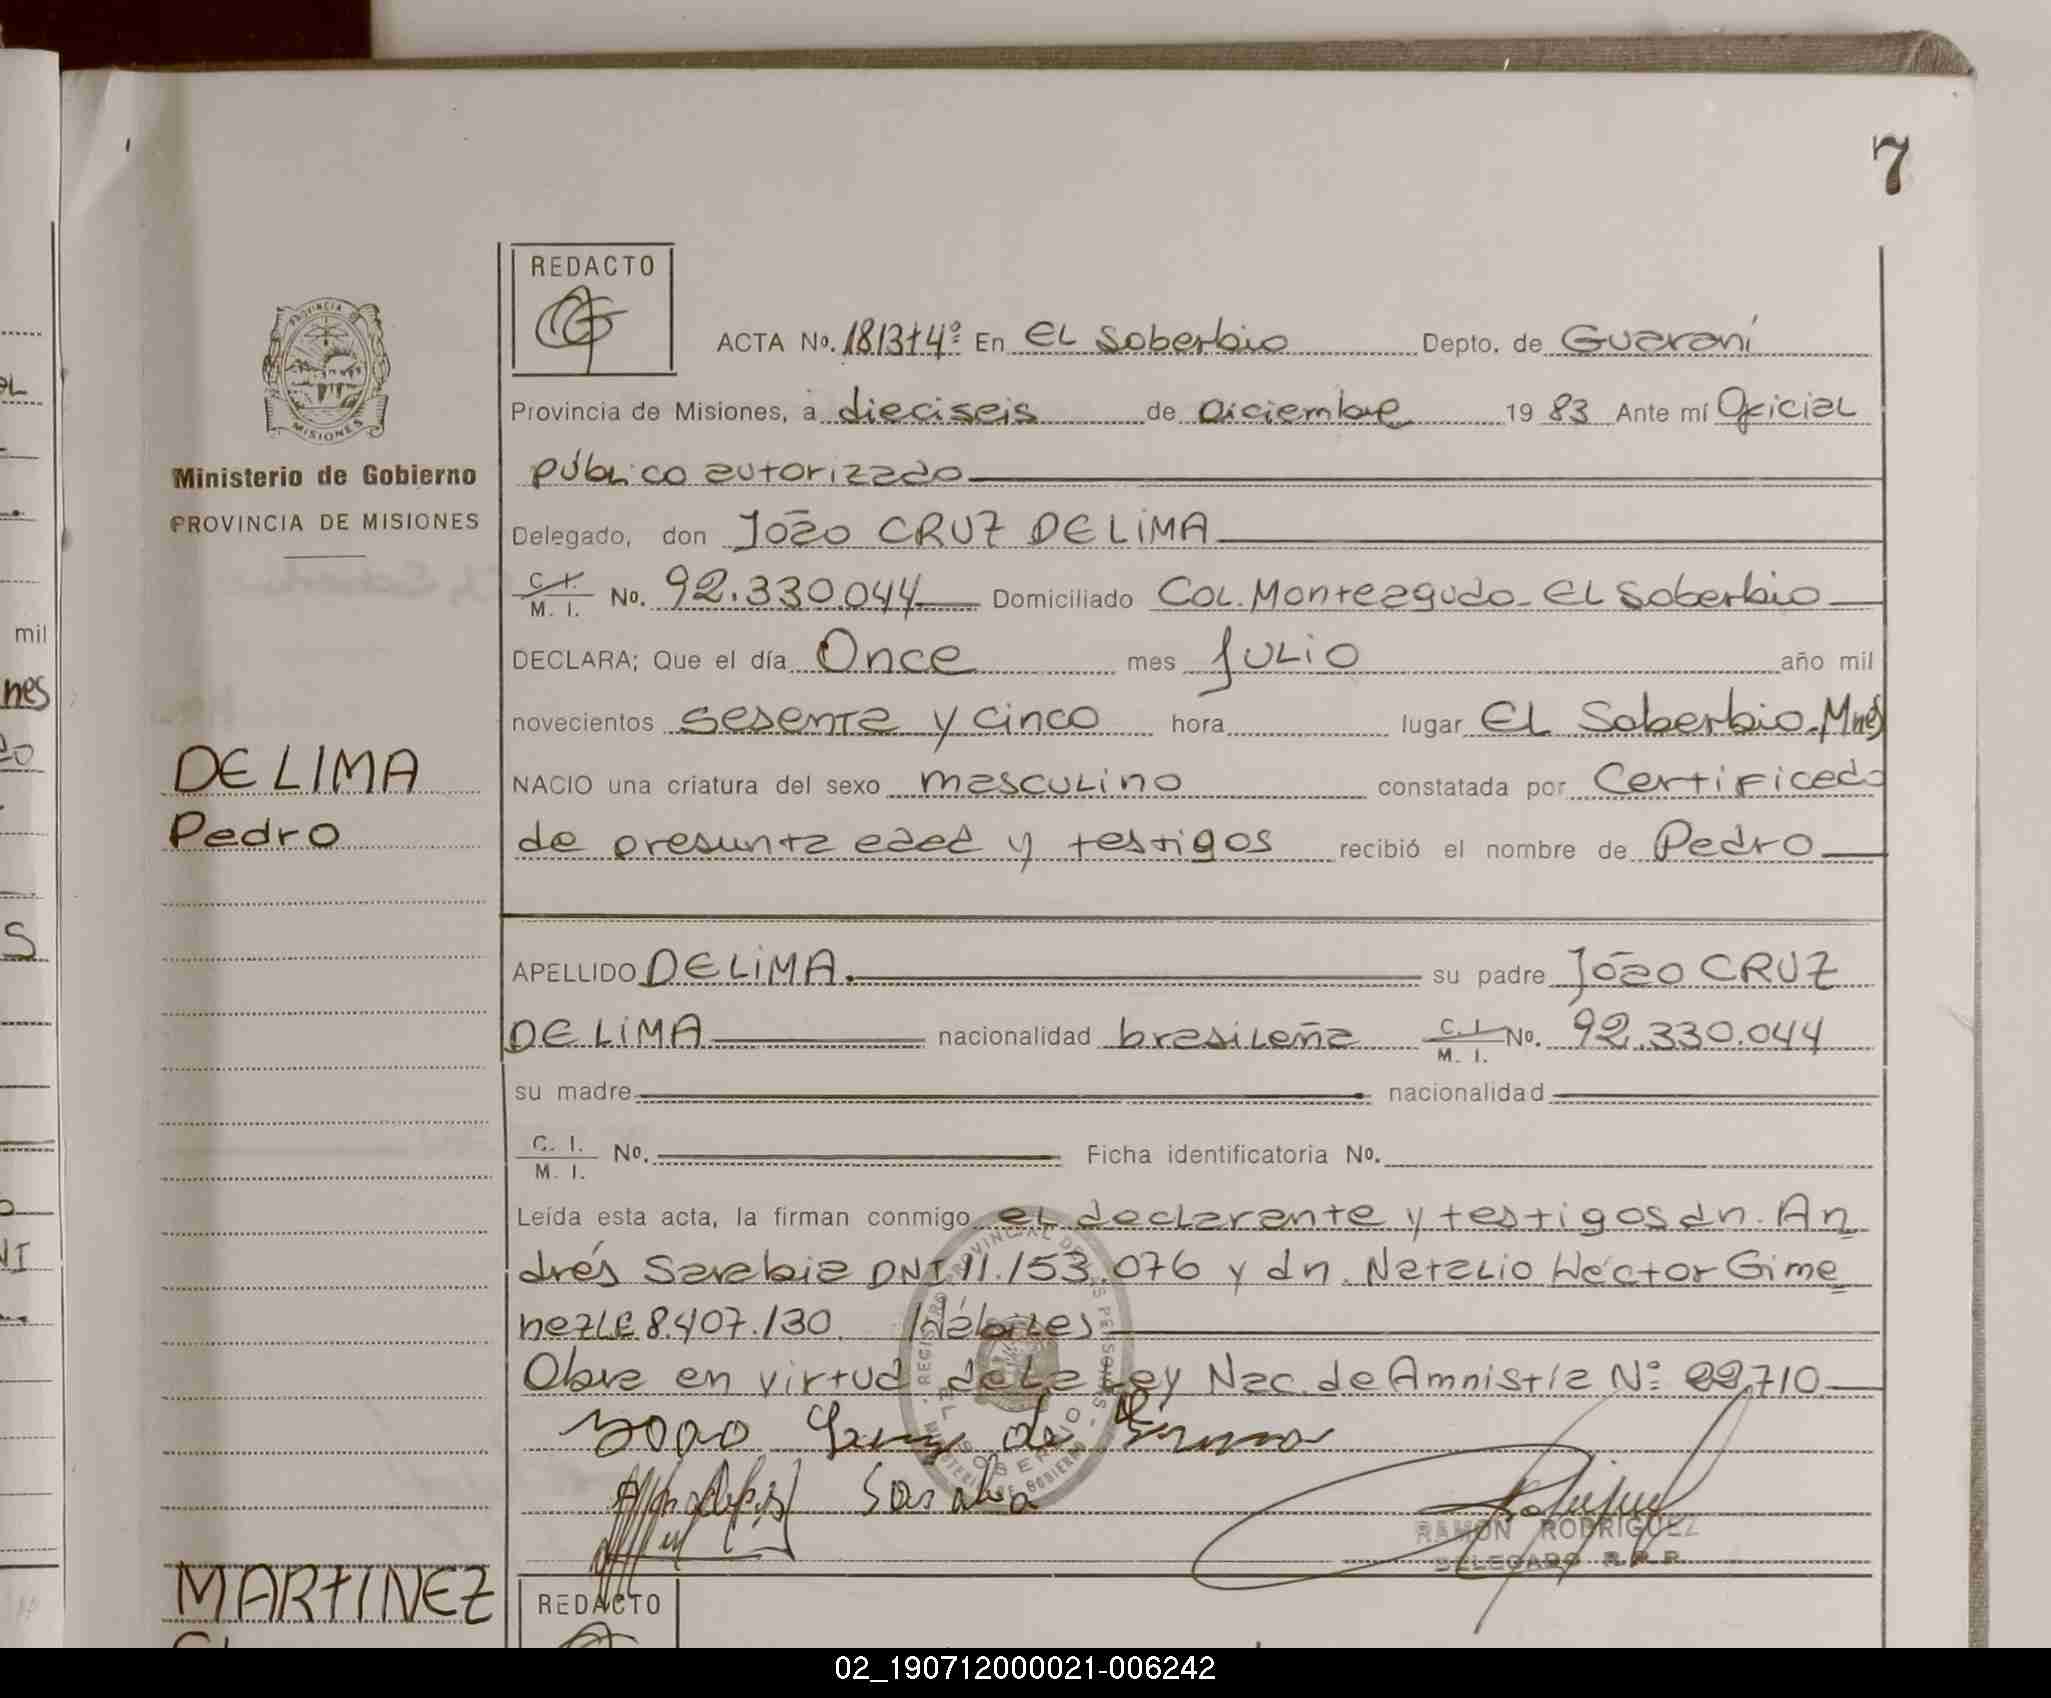 7
REDACTO
ACTA No. 1813t4º En EL Soberbio Depto. de Guaraní
Provincia de Misiones, a dieciseis de Diciembre 19 83 Ante mí Oficial
público autorizado
Delegado, don Joāo CRUZ DE LIMA
C. I. / M. I. No. 92.330.044 Domiciliado Col. Monteagudo - EL Soberbio
DECLARA; Que el día Once mes Julio año mil
novecientos sesenta y cinco hora lugar EL Soberbio. Mnes
NACIO una criatura del sexo masculino constatada por Certificado
de presunta edad y testigos recibió el nombre de Pedro
APELLIDO DE LIMA. su padre Joāo CRUZ
DE LIMA nacionalidad brasileña C. I. / M. I. No. 92.330.044
su madre nacionalidad
C. I. / M. I. No. Ficha identificatoria No.
Leída esta acta, la firman conmigo el declarante y testigos dn. An
drés Sarabia DNI 11.153.076 y dn. Natalio Héctor Gime
nez LE 8.407.130. Hábiles
Obra en virtud de la Ley Nac. de Amnistía Nº 22.710
Sarabia
RAMON RODRIGUEZ
DELEGADO R.P.P.
REDACTO
PROVINCIA DE
MISIONES
Ministerio de Gobierno
PROVINCIA DE MISIONES
DE LIMA
Pedro
MARTINEZ
mil
nes
REGISTRO PROVINCIAL DE LAS PERSONAS
MINISTERIO DE GOBIERNO
EL SOBERBIO
02_190712000021-006242